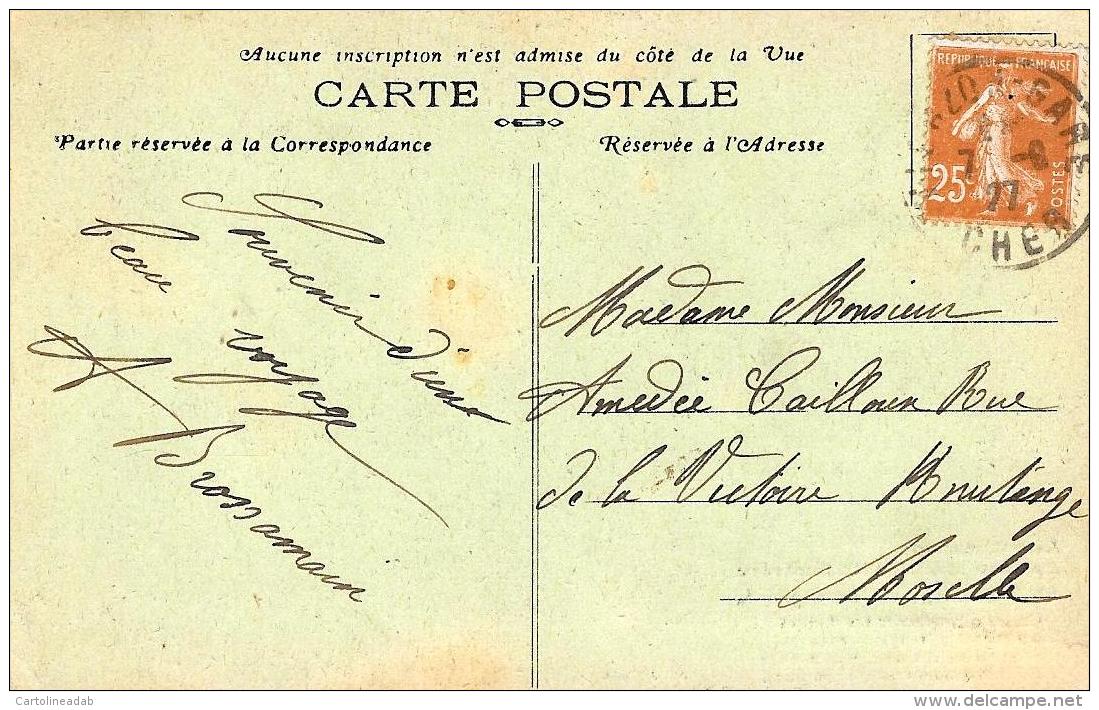 Aucune inscription n'est admise du côté de la Vue
CARTE POSTALE
Partie réservée à la Correspondance
Réservée à l'Adresse
REPUBLIQUE FRANÇAISE
25c
POSTES
GARE
7 -8
27
CHER
Souvenir d'une
beau voyage
A Brossamain
Madame Monsieur
Amedée Cailloux Rue
de la Victoire Knutange
Moselle
Cartolineadab
www.delcampe.net